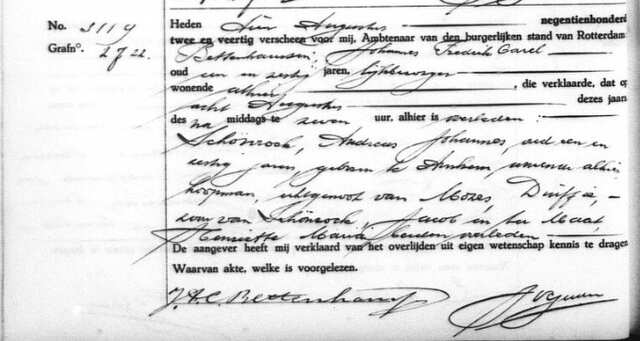 No. 3119
Grafn°. 2722.
Heden tien Augustus negentienhonderd
twee en veertig verscheen voor mij, Ambtenaar van den burgerlijken stand van Rotterdam
Bettenhaussen, Johannes Frederik Carel
oud een en zestig jaren, lijkbezorger
wonende alhier, die verklaarde, dat op
acht Augustus dezes jaars
des na middags te zeven uur, alhier is overleden:
Schönrock, Andreas Johannes, oud een en
zestig jaren, geboren te Arnhem, wonende alhier
koopman, echtgenoot van Mozes, Duiffie,
zoon van Schönrock, Jacob en ter Maat,
Henriette Maria, beiden overleden
De aangever heeft mij verklaard van het overlijden uit eigen wetenschap kennis te dragen
Waarvan akte, welke is voorgelezen.
J.F.C. Bettenhaussen